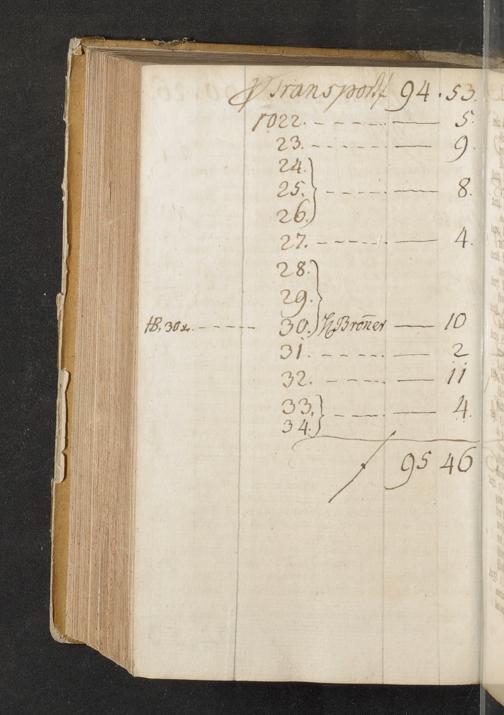 Transport 94.53.
1022. - - - - - — 5.
23. - - - - - — 9.
24.
25. } - - - - — 8.
26.
27. - - - - - — 4.
28.
29.
30. } H Broñer — 10
31. - - - - - — 2
32. - - - - - — 11
33. } - - - - — 4.
34.
95 46